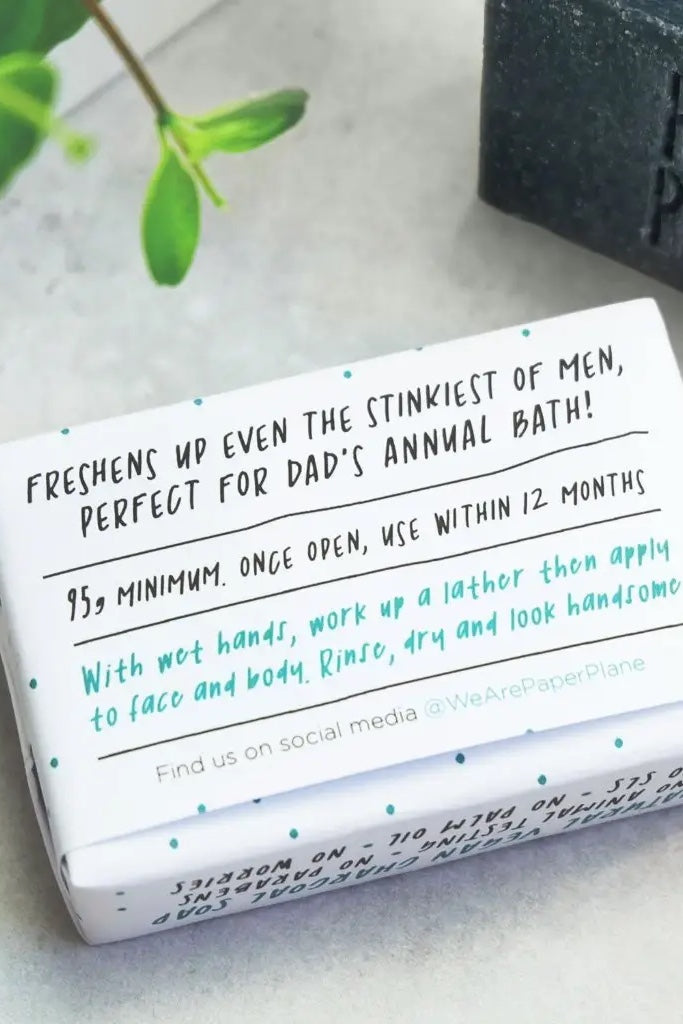 FRESHENS UP EVEN THE STINKIEST OF MEN,
PERFECT FOR DAD'S ANNUAL BATH!
95g MINIMUM. ONCE OPEN, USE WITHIN 12 MONTHS
With wet hands, work up a lather then apply
to face and body. Rinse, dry and look handsome
Find us on social media @WeArePaperPlane
NATURAL VEGAN CHARCOAL SOAP
NO ANIMAL TESTING - NO PARABENS
NO SLS - NO PALM OIL - NO WORRIES